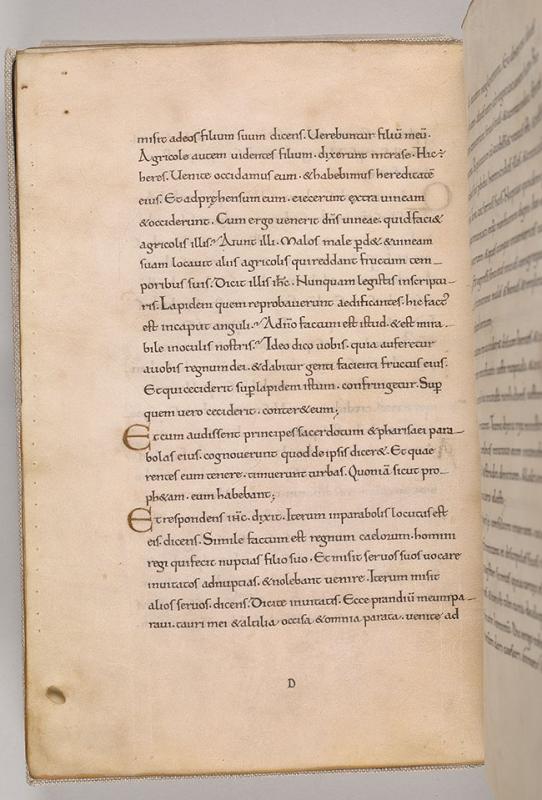 misit ad eos filium suum dicens. Verebuntur filiū meū.
Agricole autem uidentes filium. dixerunt intra se. Hic ÷
heres. Venite occidamus eum. & habebimus hereditatē
eius. Et adpręhensum eum. eiecerunt extra uineam
& occiderunt. Cum ergo uenerit dn̄s uineae. quid faci&
agricolis illis? Aiunt illi. Malos male ꝑd&. & uineam
suam locauit aliis agricolis qui reddant fructum tem-
poribus suis. Dicit illis ih̄c. Nunquam legistis inscriptu-
ris. Lapidem quem reprobauerunt aedificantes. hic fact᾽
est in caput anguli? A dn̄o factum est istud. & est mira-
bile in oculis nostris? Ideo dico uobis. quia auferetur
a uobis regnum dei. & dabitur genti facienti fructus eius.
Et qui ceciderit sup̄ lapidem istum. confringetur. Sup̄
quem uero ceciderit. conter& eum;
Et cum audissent principes sacerdotum & pharisaei para-
bolas eius. cognouerunt quod de ipsis dicer&. Et quae
rentes eum tenere. timuerunt turbas. Quoniā sicut pro-
ph&am. eum habebant;
Et respondens ih̄c. dixit. Iterum in parabolis locutus est
eis. dicens. Simile factum est regnum caelorum. homini
regi qui fecit nuptias filio suo. Et misit seruos suos uocare
inuitatos ad nuptias. & nolebant uenire. Iterum misit
alios seruos. dicens. Dicite inuitatis. Ecce prandiū meum pa-
raui. tauri mei & altilia occisa & omnia parata. uenite ad
D